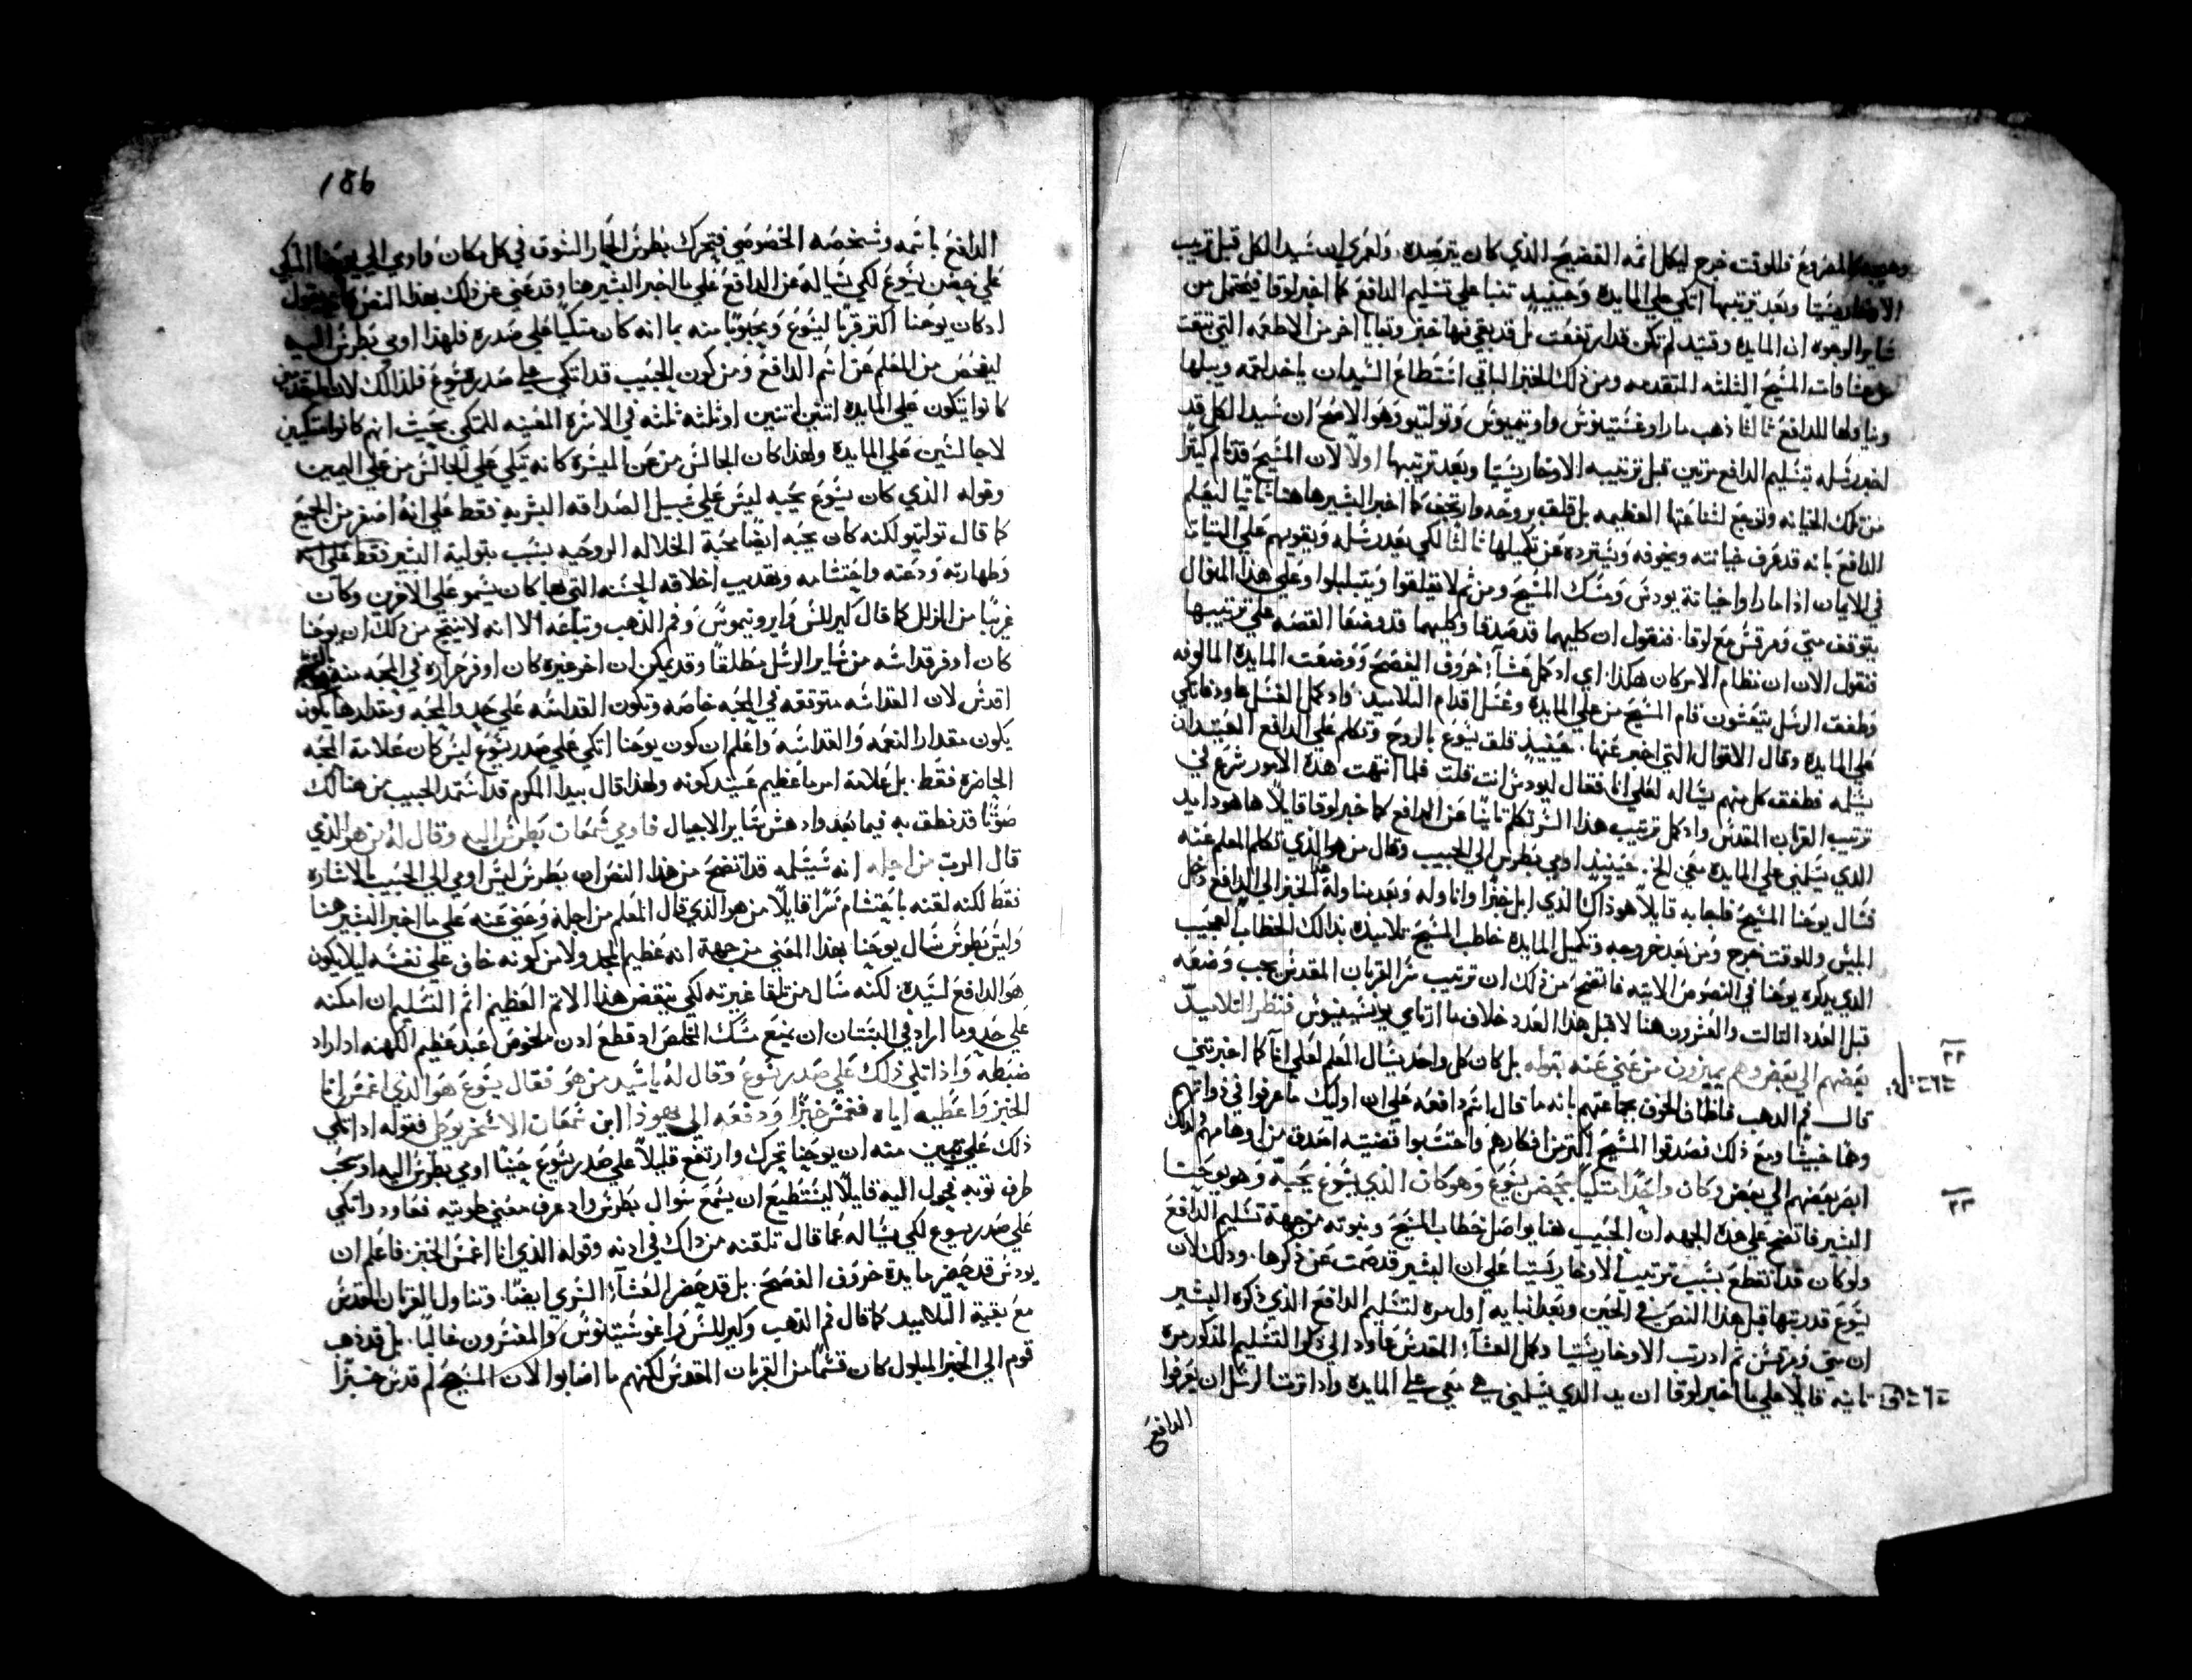 المفروع فللوقت خرج ليكل اثمه الفضيح الذي كان يترصده. ولعمري ان سيد الكل قبل ترتيب
الاوخارستيا وبعد ترتيبها اتكي علي المايده وحينيد تنبا علي تسليم الدافع كما اخبر لوقا فيحتمل من
ساير الوجوه ان المايده وقتيد لم تكن قد ارتفعت بل قد بقي فيها خبز وبقايا اخر من الاطعمه التي تبقت
المسيح الثلثه المتقدمه ومن ذلك الخبز الباقي استطاع السيد ان ياخد لقمه ويبلها
ويناولها للدافع ثالثا ذهب مار اوغستينوس واوتيميوس وتولتيو وهو الاصح ان سيد الكل قد
اخبر رسله بتسليم الدافع مرتين قبل ترتيبه الاوخارستيا وبعد ترتيبها اولا لان المسيح قد تالم كثيرا
من تلك الخيانه وتوجع لشناعتها العظيمه بل قلق بروحه وارتجف كما اخبر البشير هاهنا ثانيا ليعلم
الدافع بانه قد عرف خيانته ويخوفه ويسترده عن تكميلها ثالثا لكي يعدد رسله ويقويهم علي الثبات
في الايمان اذا ما راوا خيانة يودس ومسك المسيح ومن ثم لا يقلقوا ويتبلبلوا وعلي هذا المنوال
يتوقف متي ومرقس مع لوقا. فنقول ان كليهما قد صدقا وكليهما قد وصفا القصه علي ترتيبها
فنقول الان ان نظام الامر كان هكذا: اي اذ كمل عشآء خروف الفصح ووضعت المايده المالوفه
وطفق الرسل يتعشون قام المسيح من علي المايده وغسل اقدام التلاميد. واذ كمل الغسل عاود فاتكي
علي المايده وقال الاقوال التي اخبر عنها. حينيد قلق يسوع بالروح وتكلم علي الدافع العتيد ان
يسلمه فطفق كل منهم يساله لعلي انا فقال ليودس انت قلت فلما انتهت هذه الامور شرع في
ترتيب القربان المقدس واذ كمل ترتيب هذا السر تكلم ثانيا عن الدافع كما خبر لوقا قايلا ها هو ذا يد
الذي يسلمني علي المايده معي الخ. حينيد اومي بطرس الي الحبيب وقال من هو الذي تكلم المعلم عنه
فسال يوحنا المسيح فاجابه قايلا هو ذاك الذي ابل خبزا واناوله وبعد مناولة الخبز الي الدافع دخل
ابليس وللوقت خرج ومن بعد خروجه وتكميل المايده خاطب المسيح تلاميذه بذالك الخطاب العجيب
الذي يدكره يوحنا في النصوص الاتيه فاتضح من ذلك ان ترتيب سر القربان المقدس يجب وضعه
قبل العدد الثالت والعشرون هنا لا قبل هذا العدد خلاف ما ارتاي يونسينيوس فنظر التلاميد ٢٢
بعضهم الي بعض وهم يميزون من عني عنه بقوله بل كان كل واحد يسال المعلم لعلي انا كما اخبر متي
قال فم الدهب فاظاف الخوف بجماعتهم بانه ما قال اسم دافعه علي ان اوليك ما عرفوا في ذواتهم
وهما خبيثا ومع ذلك فصدقوا المسيح اكتر من افكارهم واحتسبوا قضيته اصدق من اوهامهم
ابصر بعضهم الي بعض وكان واحدا متكيا بحضن يسوع وهو كان الذي يسوع يحبه وهو يوحنا ٢٣
البشير فاتضح علي هذه الجهه ان الحبيب هنا يواصل خطاب المسيح وبنوته من جهة تسليم الدافع
ولو كان قد انقطع بسبب ترتيب الاوخارستيا علي ان البشير قد صمت عن ذكرها. وذلك لان
يسوع قد رتبها قبل هذا النص في الحين وبعد انبايه اول مره لتسليم الدافع الذي ذكره البشير
ان متي ومرقس ثم اذ رتب الاوخارستيا وكمل العشآء المقدس عاود الي ذكر التسليم المذكور مره
تانيه قايلا علي ما اخبر لوقا ان يد الذي يسلمني هي معي علي المايده واذ اثرت الرسل ان يعرفوا
الدافع
186
الدافع باثمه وشخصه الخصوصي فتحرك بطرس الحار الشوق في كل مكان واومي الي يوحنا المتكي
علي حضن يسوع لكي يساله عن الدافع علي ما اخبر البشير هنا وقد عني عن ذلك بهذا النص
اد كان يوحنا اكتر قربا ليسوع ومحبوبا منه بما انه كان متكيا علي صدره فلهذا اومي بطرس اليه
ليفحص من المعلم عن اسم الدافع ومن كون الحبيب قد اتكي علي صدر يسوع فلذالك لان
كانوا يتكون علي المايده اثنين اثنين او ثلثه ثلثه في الاسره المعينه للمتكي بحيث انهم كانوا متكيين
لا جالسين علي المايده ولهذا كان الجالس من عن الميسره كانه تيكي علي الجالس من علي اليمين
وقوله الذي كان يسوع يحبه ليس علي سبيل الصداقه البشريه فقط علي انه اصغر من الجميع
كما قال تولتيو لكنه كان يحبه ايضا محبة الخلاله الروحيه بسبب بتولية البشير فقط علي انه
وطهارته ودعته واحتشامه وبقديب اخلاقه الحسنه التي بها كان يسمو علي الاخرين وكان
غريبا من الزلل كما قال كيرللس وايرونيموس وفم الذهب وتباعه الا انه لا ينتج من ذلك ان يوحنا
كان اوفر قداسه من ساير الرسل مطلقا وقد يمكن ان اخر غيره كان اوفر حراره في المحبه منه
اقدس لان القداسه متوقفه في المحبه خاصه وتكون القداسه علي حدو المحبه وبمقدارها يكون
يكون مقدار النعمه والقداسه واعلم ان كون يوحنا اتكي علي صدر يسوع ليس كان علامة المحبه
الحاضره فقط. بل علامة امر ما عظيم عتيد كونه ولهذا قال بيدا المكرم قد استمد الحبيب من هنالك
صوتا قد نطق به فيما بعد وادهش ساير الاجيال فاومي شمعان بطرس اليه وقال له من هو الذي
قال الرب من اجله انه سيسلمه قد اتضح من هذا النص ان بطرس ليس اومي الي الحبيب بالاشاره
فقط لكنه لقنه باحتشام سرا قايلا من هو الذي قال المعلم من اجله وعني عنه علي ما اخبر البشير هنا
وليس بطرس سال يوحنا بهذا المعني من جهة انه عظيم المجد ولا من كونه خاف علي نفسه ليلا يكون
هو الدافع لسيده: لكنه سال من تلقا غيرته لكي ينقض هذا الاثم العظيم اثم التسليم ان امكنه
علي حدو ما اراد في البستان ان يمنع مسك المخلص اد قطع ادن ملخوص عبد عظيم الكهنه اد اراد
ضبطه واذ اتكي ذلك علي صدر يسوع وقال له يا سيد من هو فقال يسوع هو الذي اغمس انا
الخبز واعطيه اياه فغمس خبزا ودفعه الي يهوذا ابن شمعان الاسخريوطي فقوله اذ اتكي
ذلك علي تبين منه ان يوحنا تحرك وارتفع قليلا علي صدر يسوع حينما اومي بطرس اليه او سحب
طرف توبه فحول اليه قايلا ليستطيع ان يسمع سوال بطرس واد عرف معني طويته فعاود واتكي
علي صدر يسوع لكي يساله عما قال تلقنه من ذاك في ادنه وقوله الذي انا اغمس الخبز فاعلم ان
يودس قد حضر مايدة خروف الفصح. بل قد حضر العشآء السري ايضا. وتناول القربان المقدس
مع بقية التلاميد كما قال فم الدهب وكيرللس واغوستينوس والمفسرون غالبا. بل قد ذهب
قوم الي الخبز المبلول كان قسما من القربان المقدس لكنهم ما اصابوا لان المسيح لم قدس خبزا